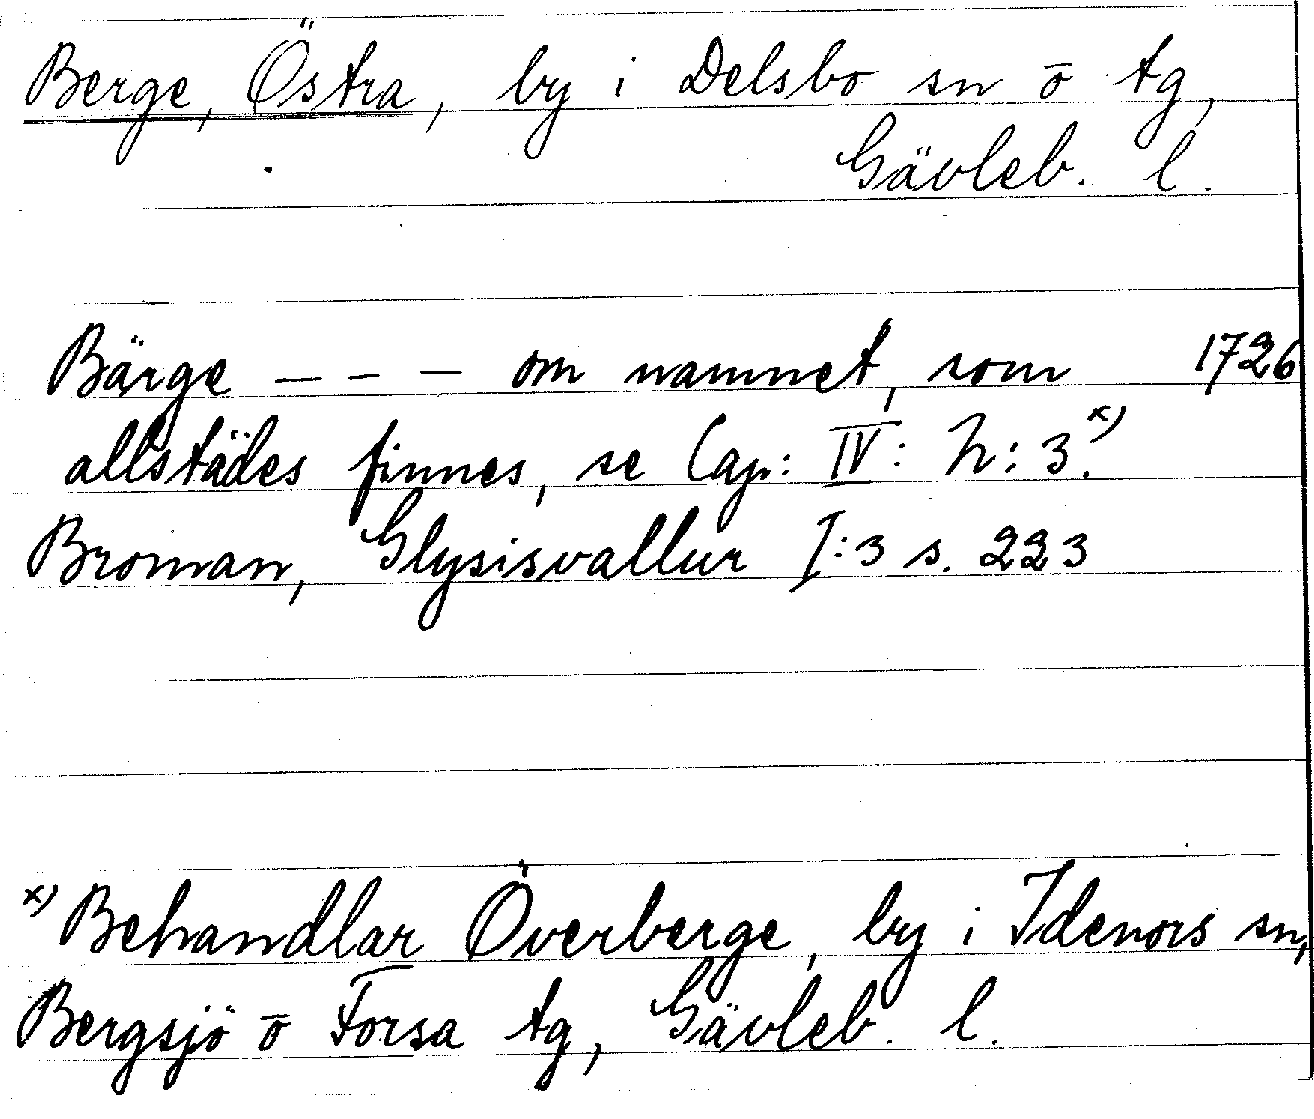 Berge, Östra, by i Delsbo sn o tg,
Gävleb. l.
Bärge — — — om namnet, som 1726
allstädes finnes, se Cap: IV: h: 3.x)
Broman, Glysisvallur I:3 s. 223
x) Behandlar Överberge, by i Idenors sn,
Bergsjö o Forsa tg, Gävleb. l.